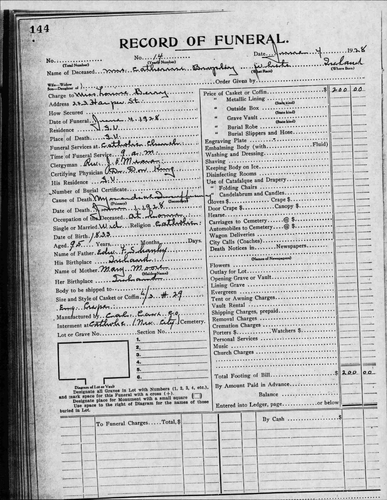 144
RECORD OF FUNERAL.
No. No. 14 Date, June 4 1928
(Total Number) (Yearly Number)
Name of Deceased Mrs Catherine White Ireland
(What Race) (Where Born)
Wife—Widow
Son—Daughter of
Order Given by
Charge to Miss Berry
Address 223 Harper St
How Secured
Date of Funeral June 4 1928
Residence S.V.
Place of Death S.V.
Funeral Services at Catholic Church
Time of Funeral Service 9 a.m.
Clergyman Rev. J.F. Moran
Certifying Physician Dr. Don King
His Residence S.V.
Number of Burial Certificate
Cause of Death
(Primary) (Secondary)
Date of Death 1928
Occupation of Deceased At home
Single or Married Wid. Religion Catholic
Date of Birth 1833
Aged 95 Years Months Days.
Name of Father
His Birthplace Ireland
Name of Mother Mary Moore
(Maiden Name)
Her Birthplace Ireland
Body to be shipped to
Size and Style of Casket or Coffin 6/3 # 29
Eng. Crepe
Manufactured by
Interment at Catholic (New City) Cemetery.
Lot or Grave No. Section No.
1.
2.
3.
4.
5.
6.
Diagram of Lot or Vault
Designate all Graves in Lot with Numbers (1, 2, 3, 4, etc.),
and mark space for this Funeral with a cross (+).
Designate place for Monument with a small square
Use space to right of Diagram for the names of those
buried in Lot.
Price of Casket or Coffin $ 200 00
" Metallic Lining
" Outside Box
" Grave Vault
" Burial Robe
" Burial Slippers and Hose
Engraving Plate
Embalming Body (with Fluid)
Washing and Dressing
Shaving
Keeping Body on Ice
Disinfecting Rooms
Use of Catafalque and Drapery
" Folding Chairs
" Candelabrum and Candles
Gloves $ Crape $
Door Crape $ Canopy $
Hearse
Carriages to Cemetery @ $
Automobiles to Cemetery @ $
Wagon Deliveries
City Calls (Coaches)
Death Notices in Newspapers
(Names of Newspapers)
Flowers
Outlay for Lot
Opening Grave or Vault
Lining Grave
Evergreen
Tent or Awning Charges
Vault Rental
Shipping Charges, prepaid
Removal Charges
Cremation Charges
Porters $ Watchers $
Personal Services
Music
Church Charges
Total Footing of Bill $ 200 00
By Amount Paid in Advance
Balance
Entered into Ledger, page or below
To Funeral Charges, Total $
By Cash $